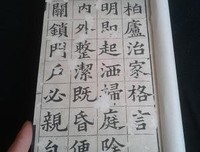 柏廬治家格言
明即起洒掃庭除
內外整潔既昏便
關鎖門戶必親自